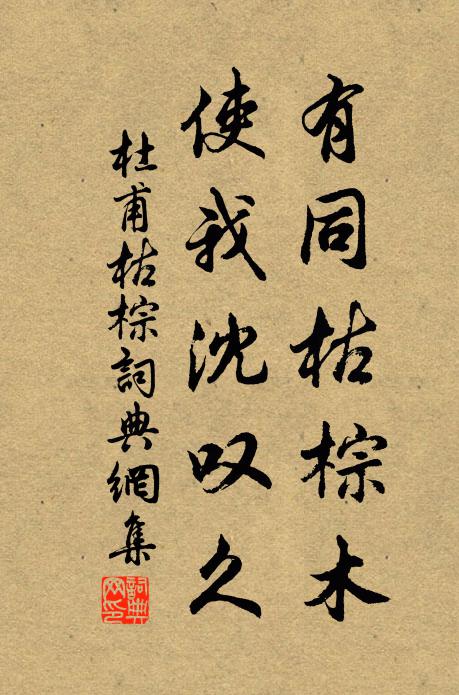 有同枯棕木
使我沈叹久
杜甫枯棕詞典網集
詞典網印